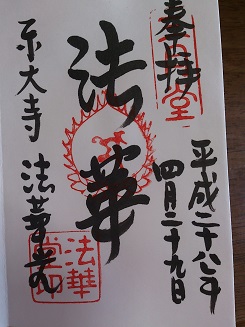 奉拝
平成二十八年
四月二十九日
法華
東大寺 法華堂
法華
堂印